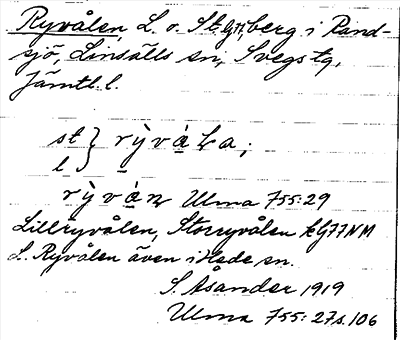 Ryvålen, L. o. St. G77, berg i Rand-
sjö, Linsälls sn, Svegs tg,
Jämtl. l.
st } rỳvåLa;
l
rỳvån Ulma 755:29
Lillryvålen, Storryvålen kG77NM
L. Ryvålen även i Hede sn.
S. Åsander 1919
Ulma 755:27 s. 106